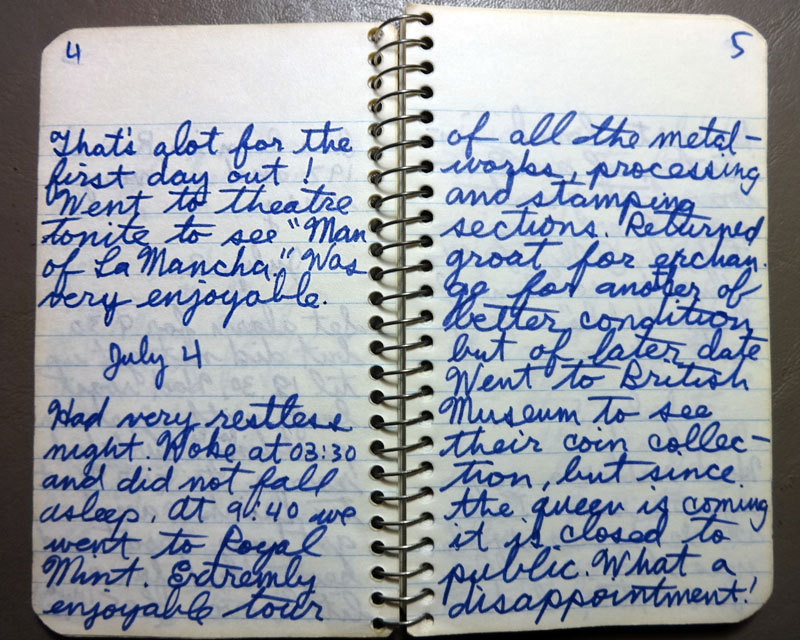 4
That's alot for the
first day out!
Went to theatre
tonite to see "Man
of La Mancha." Was
very enjoyable.
July 4
Had very restless
night. Woke at 03:30
and did not fall
asleep. At 9:40 we
went to Royal
Mint. Extremly
enjoyable tour
5
of all the metal-
works, processing
and stamping
sections. Returned
groat for exchan.
ge for another of
better condition
but of later date
Went to British
Museum to see
their coin collec-
tion, but since
the queen is coming
it is closed to
public. What a
disappointment!